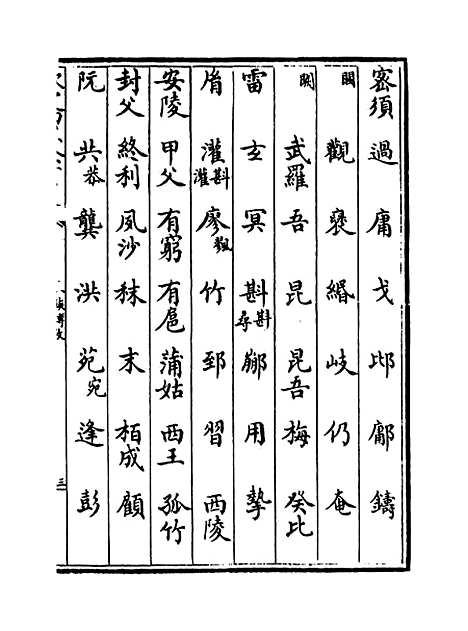 密須 過 庸 戈 邶 鄘 鑄
觀 襃 緡 岐 仍 奄
武羅 吾 昆 昆吾 梅 癸比
雷 玄 冥 斟 斟尋 䣙 用 摯
灌 斟灌 廖 竹 郅 習 西陵
安陵 甲父 有窮 有扈 蒲姑 西王 孤竹
封父 終利 夙沙 秣 末 柏成 顧
阮 共 恭 龔 洪 苑 宛 逢 彭
三